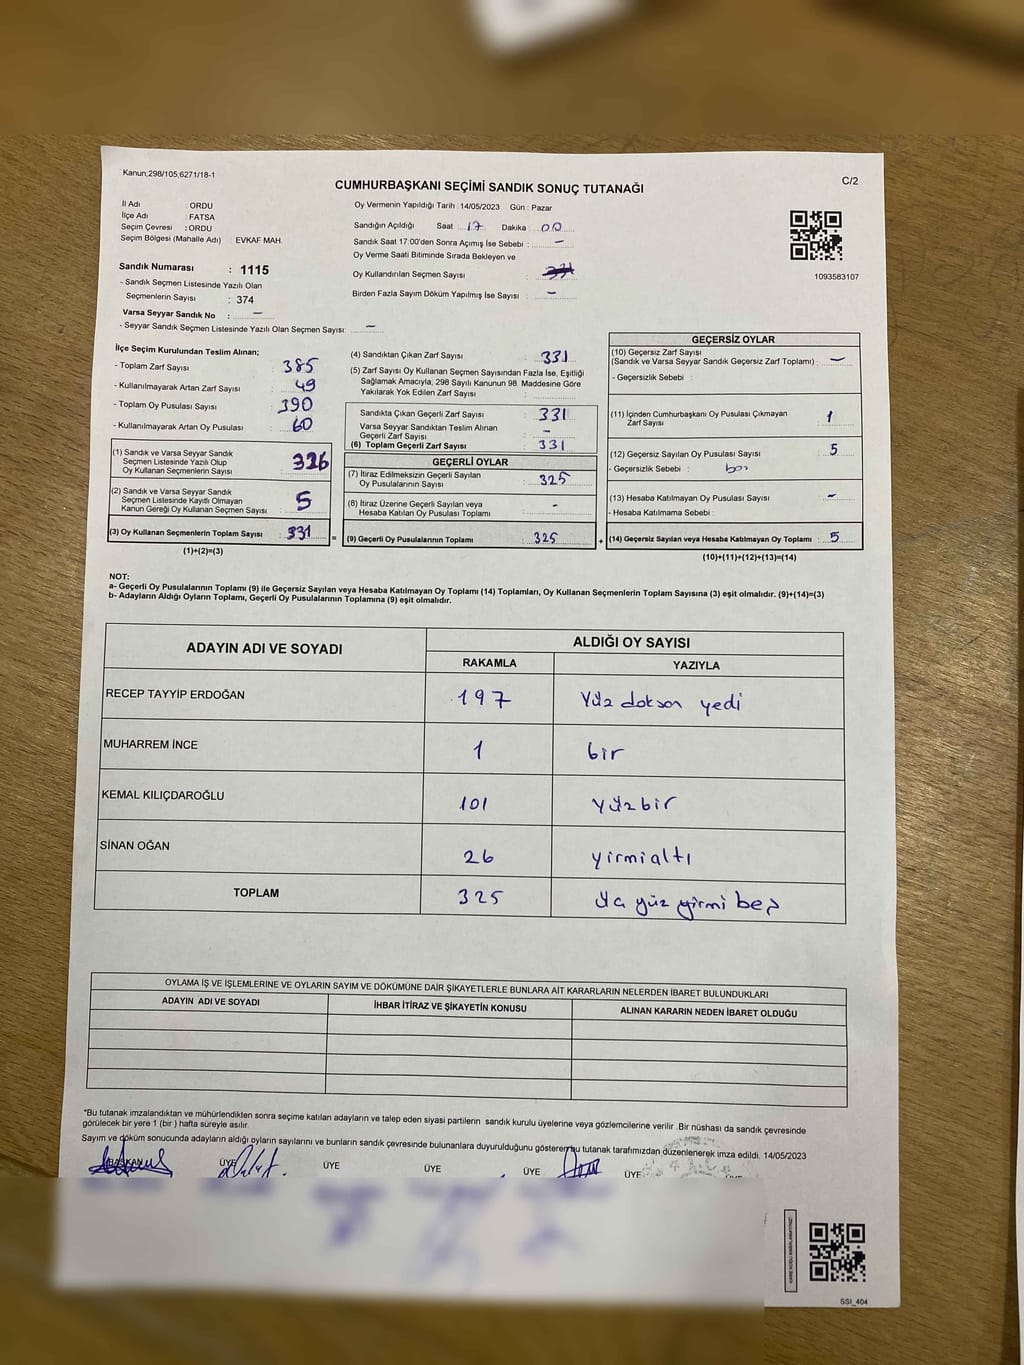 Kanun;298/105;6271/18-1
C/2
CUMHURBAŞKANI SEÇİMİ SANDIK SONUÇ TUTANAĞI
İl Adı : ORDU
İlçe Adı : FATSA
Seçim Çevresi : ORDU
Seçim Bölgesi (Mahalle Adı) EVKAF MAH.
Sandık Numarası : 1115
- Sandık Seçmen Listesinde Yazılı Olan
Seçmenlerin Sayısı : 374
Varsa Seyyar Sandık No : -
- Seyyar Sandık Seçmen Listesinde Yazılı Olan Seçmen Sayısı: -
Oy Vermenin Yapıldığı Tarih : 14/05/2023 Gün : Pazar
Sandığın Açıldığı Saat : 17 Dakika : 00
Sandık Saat 17.00'den Sonra Açımış İse Sebebi : -
Oy Verme Saati Bitiminde Sırada Bekleyen ve
Oy Kullandırılan Seçmen Sayısı :
Birden Fazla Sayım Döküm Yapılmış İse Sayısı : -
1093583107
İlçe Seçim Kurulundan Teslim Alınan;
- Toplam Zarf Sayısı : 385
- Kullanılmayarak Artan Zarf Sayısı : 49
- Toplam Oy Pusulası Sayısı : 390
- Kullanılmayarak Artan Oy Pusulası : 60
(1) Sandık ve Varsa Seyyar Sandık
Seçmen Listesinde Yazılı Olup
Oy Kullanan Seçmenlerin Sayısı : 326
(2) Sandık ve Varsa Seyyar Sandık
Seçmen Listesinde Kayıtlı Olmayan
Kanun Gereği Oy Kullanan Seçmen Sayısı : 5
(3) Oy Kullanan Seçmenlerin Toplam Sayısı : 331 =
(1)+(2)=(3)
(4) Sandıktan Çıkan Zarf Sayısı : 331
(5) Zarf Sayısı Oy Kullanan Seçmen Sayısından Fazla İse, Eşitliği
Sağlamak Amacıyla; 298 Sayılı Kanunun 98. Maddesine Göre
Yakılarak Yok Edilen Zarf Sayısı :
Sandıkta Çıkan Geçerli Zarf Sayısı : 331
Varsa Seyyar Sandıktan Teslim Alınan
Geçerli Zarf Sayısı : -
(6) Toplam Geçerli Zarf Sayısı : 331
GEÇERLİ OYLAR
(7) İtiraz Edilmeksizin Geçerli Sayılan
Oy Pusulalarının Sayısı : 325
(8) İtiraz Üzerine Geçerli Sayılan veya
Hesaba Katılan Oy Pusulası Toplamı : -
(9) Geçerli Oy Pusulalarının Toplamı : 325 +
GEÇERSİZ OYLAR
(10) Geçersiz Zarf Sayısı
(Sandık ve Varsa Seyyar Sandık Geçersiz Zarf Toplamı) : -
- Geçersizlik Sebebi :
(11) İçinden Cumhurbaşkanı Oy Pusulası Çıkmayan
Zarf Sayısı : 1
(12) Geçersiz Sayılan Oy Pusulası Sayısı : 5
- Geçersizlik Sebebi :
(13) Hesaba Katılmayan Oy Pusulası Sayısı : -
- Hesaba Katılmama Sebebi :
(14) Geçersiz Sayılan veya Hesaba Katılmayan Oy Toplamı : 5
(10)+(11)+(12)+(13)=(14)
NOT:
a- Geçerli Oy Pusulalarının Toplamı (9) ile Geçersiz Sayılan veya Hesaba Katılmayan Oy Toplamı (14) Toplamları, Oy Kullanan Seçmenlerin Toplam Sayısına (3) eşit olmalıdır. (9)+(14)=(3)
b- Adayların Aldığı Oyların Toplamı, Geçerli Oy Pusulalarının Toplamına (9) eşit olmalıdır.
ADAYIN ADI VE SOYADI
ALDIĞI OY SAYISI
RAKAMLA YAZIYLA
RECEP TAYYİP ERDOĞAN 197 Yüz doksan yedi
MUHARREM İNCE 1 bir
KEMAL KILIÇDAROĞLU 101 Yüzbir
SİNAN OĞAN 26 yirmialtı
TOPLAM 325 yüz yirmi beş
OYLAMA İŞ VE İŞLEMLERİNE VE OYLARIN SAYIM VE DÖKÜMÜNE DAİR ŞİKAYETLERLE BUNLARA AİT KARARLARIN NELERDEN İBARET BULUNDUKLARI
ADAYIN ADI VE SOYADI İHBAR İTİRAZ VE ŞİKAYETİN KONUSU ALINAN KARARIN NEDEN İBARET OLDUĞU
*Bu tutanak imzalandıktan ve mühürlendikten sonra seçime katılan adayların ve talep eden siyasi partilerin sandık kurulu üyelerine veya gözlemcilerine verilir .Bir nüshası da sandık çevresinde
görülecek bir yere 1 (bir ) hafta süreyle asılır.
Sayım ve döküm sonucunda adayların aldığı oyların sayılarını ve bunların sandık çevresinde bulunanlara duyurulduğunu gösterem bu tutanak tarafımızdan düzenlenerek imza edildi. 14/05/2023
BAŞKAN ÜYE ÜYE ÜYE ÜYE ÜYE
SSİ_404